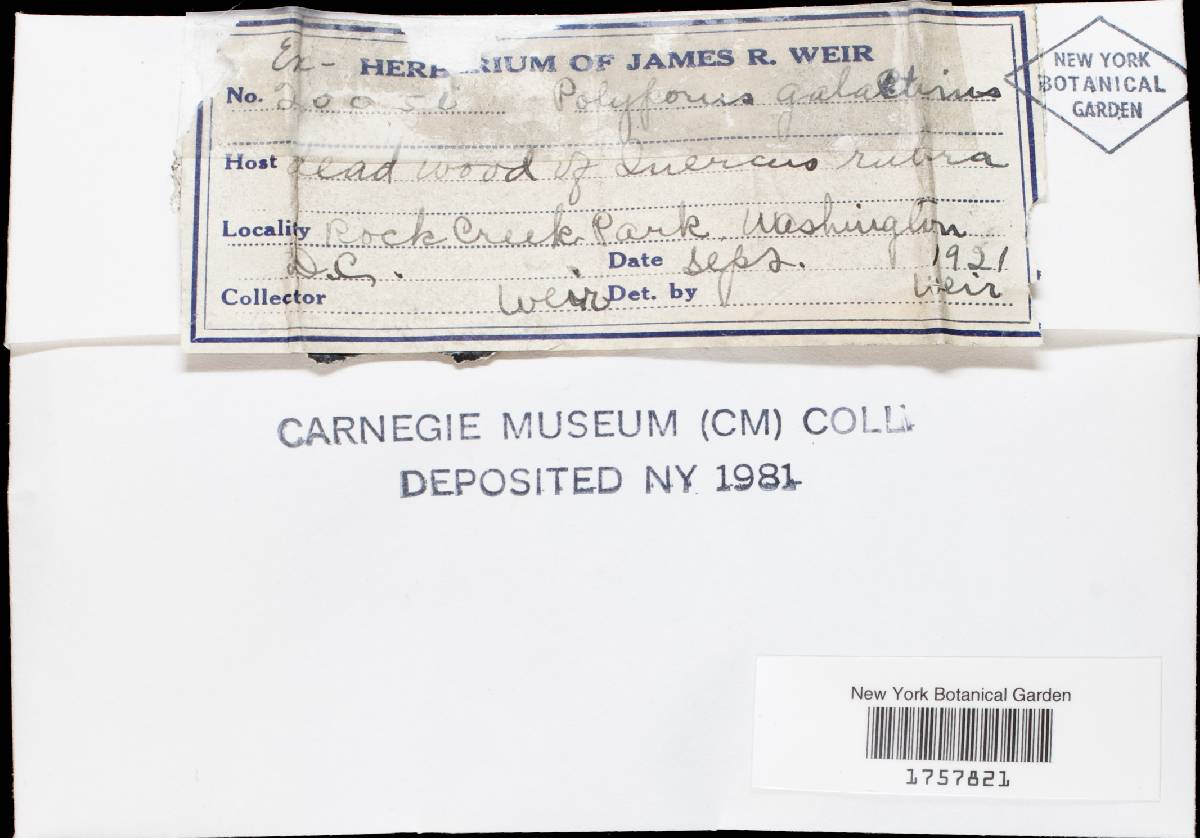 Ex- HERBARIUM OF JAMES R. WEIR
No. Polyporus galactinus
Host dead wood of Quercus rubra
Locality Rock Creek Park, Washington
D.C. Date Sept. 1921
Collector Weir Det. by Weir
NEW YORK
BOTANICAL
GARDEN
CARNEGIE MUSEUM (CM) COLL.
DEPOSITED NY 1981
New York Botanical Garden
1757821